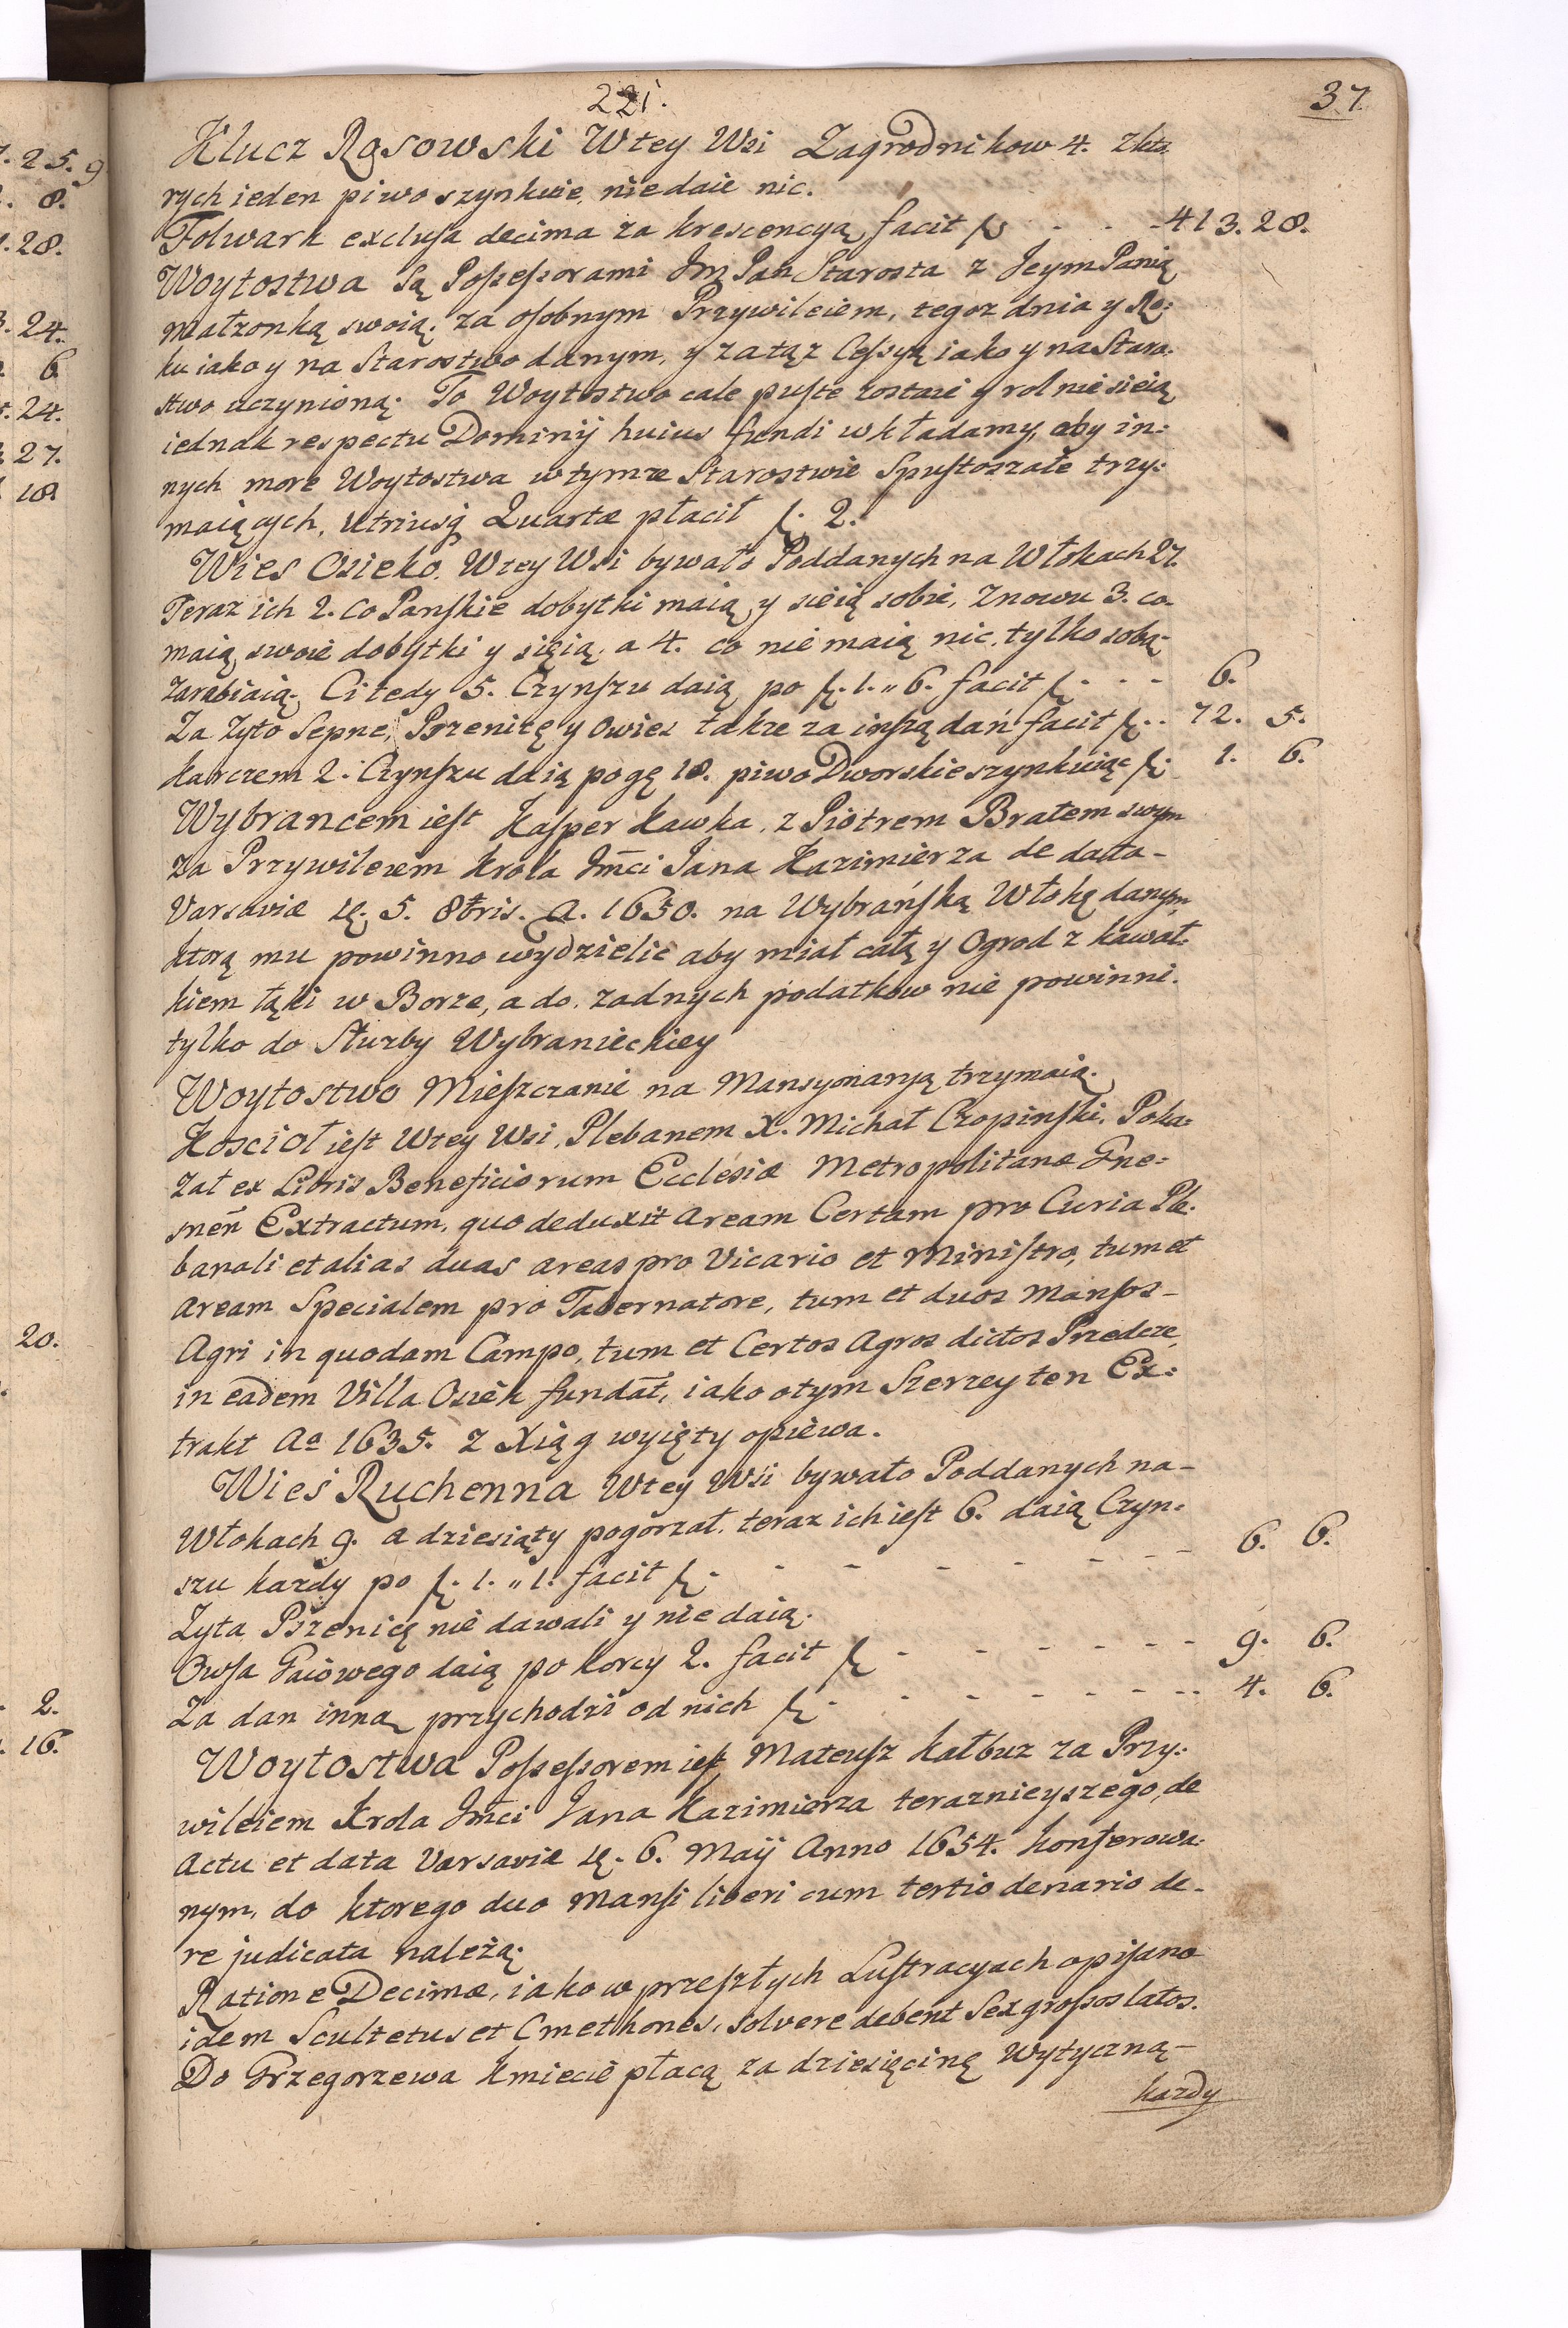 221.
37
Klucz Rosowski Wtey Wsi Zagrodnikow 4. zkto
rych ieden piwo szynkuie, niedaie nic.
Folwark exclusa decima za krescencyą facit f. - - - 413. 28.
Woytostwa Są Possessorami Jm Pan Starosta z JeymPanią
małzonką swoią, za osobnym Przywileiem, tegoz dnia y Ro:
ku iako y na Starostwo danym, y zatąz Cessyą iako y naStaro:
stwo uczynioną. To Woytostwo cale puste zostaie y rol niesieią
iednak respectu Dominij huius fundi wkładamy, aby in:
nych more Woytostwa wtymze Starostwie Spustoszałe trzy:
maiących, utriusq Quartæ płacił f. 2.
Wies Osieko. Wtey Wsi bywało Poddanych na Włokach 27.
Teraz ich 2. co Panskie dobytki maią y sieią sobie, Znowu 3. co
maią swoie dobytki y sieią, a 4. co nie maią nic, tylko sobą
zarabiaią. Ci tedy 5. Czynszu daią po f. 1. „ 6. facit f. - - - 6.
Za zyto Sepne, Przenicę y owies takze za inszą dań facit f. - - 72. 5.
Karczem 2. Czynszu daią po gę 18. piwo Dworskie szynkuiąc f. 1. 6.
Wybrancem iest Kasper Kawka, z Piotrem Bratem swym
Za Przywileiem Krola Jmci Jana Kazimierza de data -
Varsaviæ d. 5. 8bris. A. 1650. na Wybrańską Włokę danym,
ktorą mu powinno wydzielic aby miał całą y Ogrod z kawał:
kiem łąki w Borze, a do zadnych podatkow nie powinni.
tylko do Słuzby Wybranieckiey
Woytostwo Mieszczanie na Mansyonaryą trzymaią.
Kosciol iest Wtey Wsi, Plebanem X. Michał Czopinski. Poka:
zał ex Libris Beneficiorum Ecclesiæ Metropolitanæ Gne:
sneñ Extractum, quo deduxit Aream Certam pro Curia Ple:
banali et alias duas areas pro Vicario et Ministro, tum et
Aream Specialem pro Tabernatore, tum et duos Mansos -
Agri in quodam Campo, tum et Certos Agros dictos Przedcze,
in eadem Villa Osiek fundat, iako otym Szerzey ten Ex:
trakt Aº 1635. Z Xiąg wyięty opiewa.
Wieś Ruchenna Wtey Wsi bywało Poddanych na -
Włokach 9. a dziesiąty pogorzał, teraz ich iest 6. daią Czyn:
szu kazdy po f. 1. „ 1. facit f. - - - - - - - 6. 6.
Zyta Pszenicę nie dawali y nie daią.
Owsa Gaiowego daią po korcy 2. facit f. - - - - - - 9. 6.
Za dan inną przychodzi od nich f. - - - - - - - 4. 6.
Woytostwa Possessorem iest Mateusz Kałbuz za Przy:
wileiem Krola Jmci Jana Kazimierza teraznieyszego, de
Actu et data Varsaviæ d. 6. Maij Anno 1654. konferowa:
nym, do ktorego duo Mansi liberi cum tertio denario de -
re judicata należą.
Ratione Decimæ, iako w przeszłych Lustracyach opisano
idem Scultetus et Cmethones, solvere debent Sex grossos latos.
Do Grzegorzewa kmiecie płacą za dziesięcinę Wytyczną -
kazdy